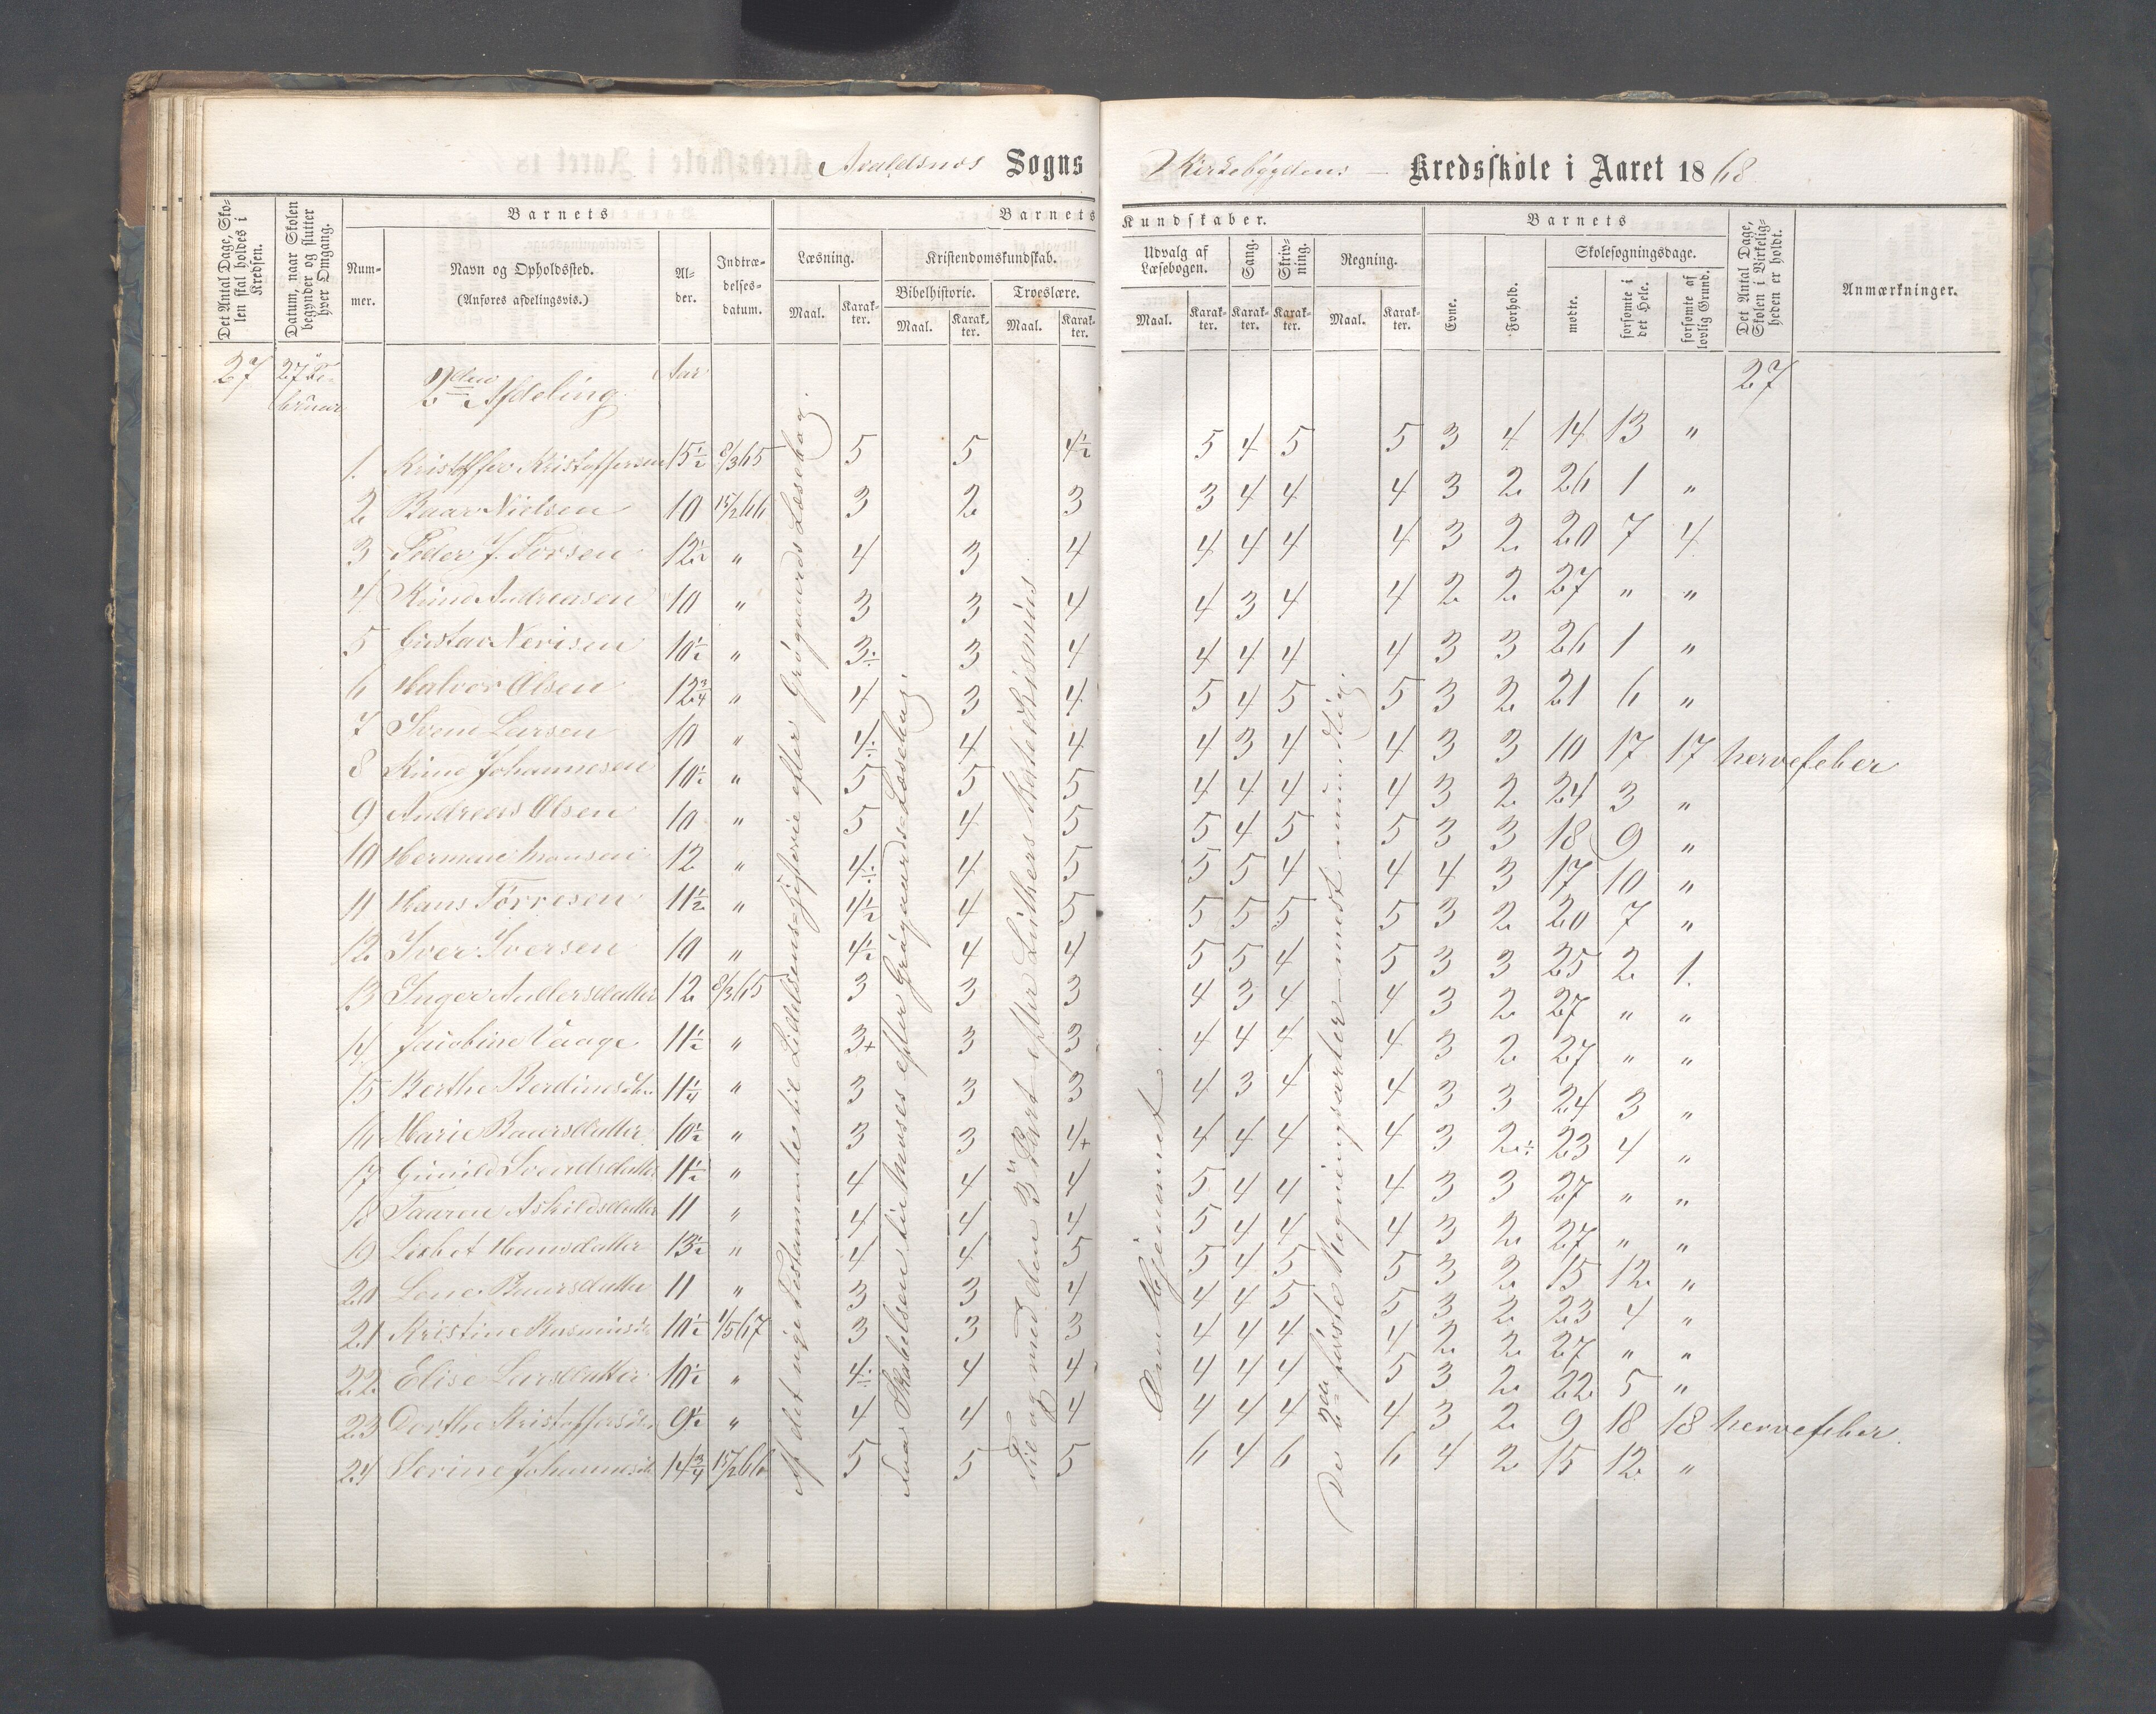 Avaldsnes Sogns
Kirkebygdens — Kredsskole i Aaret 1868
Det Antal Dage, Skolen skal holdes i Kredsen.
Datum, naar Skolen begynder og slutter hver Omgang.
Barnets
Nummer.
Navn og Opholdssted.
(Anføres afdelingsvis.)
Alder.
Indtrædelsesdatum.
Barnets
Læsning.
Maal.
Karakter.
Kristendomskundskab.
Bibelhistorie.
Maal.
Karakter.
Troeslære.
Maal.
Karakter.
Kundskaber.
Udvalg af Læsebogen.
Maal.
Karakter.
Sang.
Karakter.
Skrivning.
Karakter.
Regning.
Maal.
Karakter.
Barnets
Evne.
Forhold.
Skolesøgningsdage.
mødte.
forsømte i det Hele.
forsømte af lovlig Grund.
Det Antal Dage, Skolen i Virkeligheden er holdt.
Anmærkninger.
27 2den Afdeling Aar 27
1. Kristoffer Kristoffersen 15½ 8/3 65 5 5 4½ 5 4 5 5 3 4 14 13 "
2 Baar Nielsen 10 15/2 66 3 2 3 3 4 4 4 3 2 26 1 "
3 Peder J. Torsen 12½ " 4 3 4 4 4 4 4 3 2 20 7 4
4 Rune Andreasen 10 " 3 3 4 4 3 4 4 2 2 27 " "
5 Gustav Nerisen 10½ " 3÷ 3 4 4 4 4 4 3 3 26 1 "
6 Halvor Olsen 12¾ " 4 3 4 5 4 5 5 3 2 21 6 "
7 Svend Larsen 10 " 4÷ 4 4 4 3 4 4 3 3 10 17 17 nervefeber
8 Rune Johannesen 10½ " 5 5 5 4 4 4 4 3 2 24 3 "
9 Andreas Olsen 10 " 5 4 5 5 4 5 5 3 3 18 9 "
10 Herman Monsen 12 " 4÷ 4 5 5 5 4 4 4 3 17 10 "
11 Hans Tørresen 11½ " 4½ 4 5 5 5 5 5 3 2 20 7 "
12 Iver Iversen 10 " 4½ 4 4 5 5 4 5 3 3 25 2 1.
13 Inger Andersdatter 12 8/3 65 3 3 3 4 3 4 4 3 2 27 " "
14 Jacobine Vaage 11½ " 3+ 3 3 4 4 4 4 3 2 27 " "
15 Berthe Berdinesdtr 11¼ " 3 3 3 4 3 4 4 3 3 24 3 "
16 Marie Baarsdatter 10½ " 3 3 4+ 4 4 4 4 3 2÷ 23 4 "
17 Gunild Svendsdatter 11½ " 4 4 4 5 4 4 4 3 3 27 " "
18 Tauren Askildsdatter 11 " 4 4 4 5 4 4 4 3 2 27 " "
19 Lisbet Hansdatter 13½ " 4 4 5 5 4 5 5 3 2 15 12 "
20 Lene Baarsdatter 11 " 3 3 4 4 4 5 5 3 2 23 4 "
21 Kristine Rasmusdtr 10½ 1/5 67 3 3 3 4 4 4 4 2 2 27 " "
22 Elise Larsdatter 10½ " 4÷ 4 4 4 4 4 5 3 2 22 5 "
23 Dorthe Kristoffersdtr 9½ " 4 4 4 4 4 4 4 3 2 9 18 18 nervefeber
24 Serine Johannesdtr 14¾ 15/2 66 5 5 5 6 4 6 6 4 2 15 12 "
Af det nye Testamente til Lidelseshistorie efter Grøgaards Læsebog.
Fra Skabelsen til Moses efter Grøgaards Læsebog.
Til og med den 3die Part efter Luthers Katekismus
Gjennemet.
De 2de første Regningsarter med mundtlig.